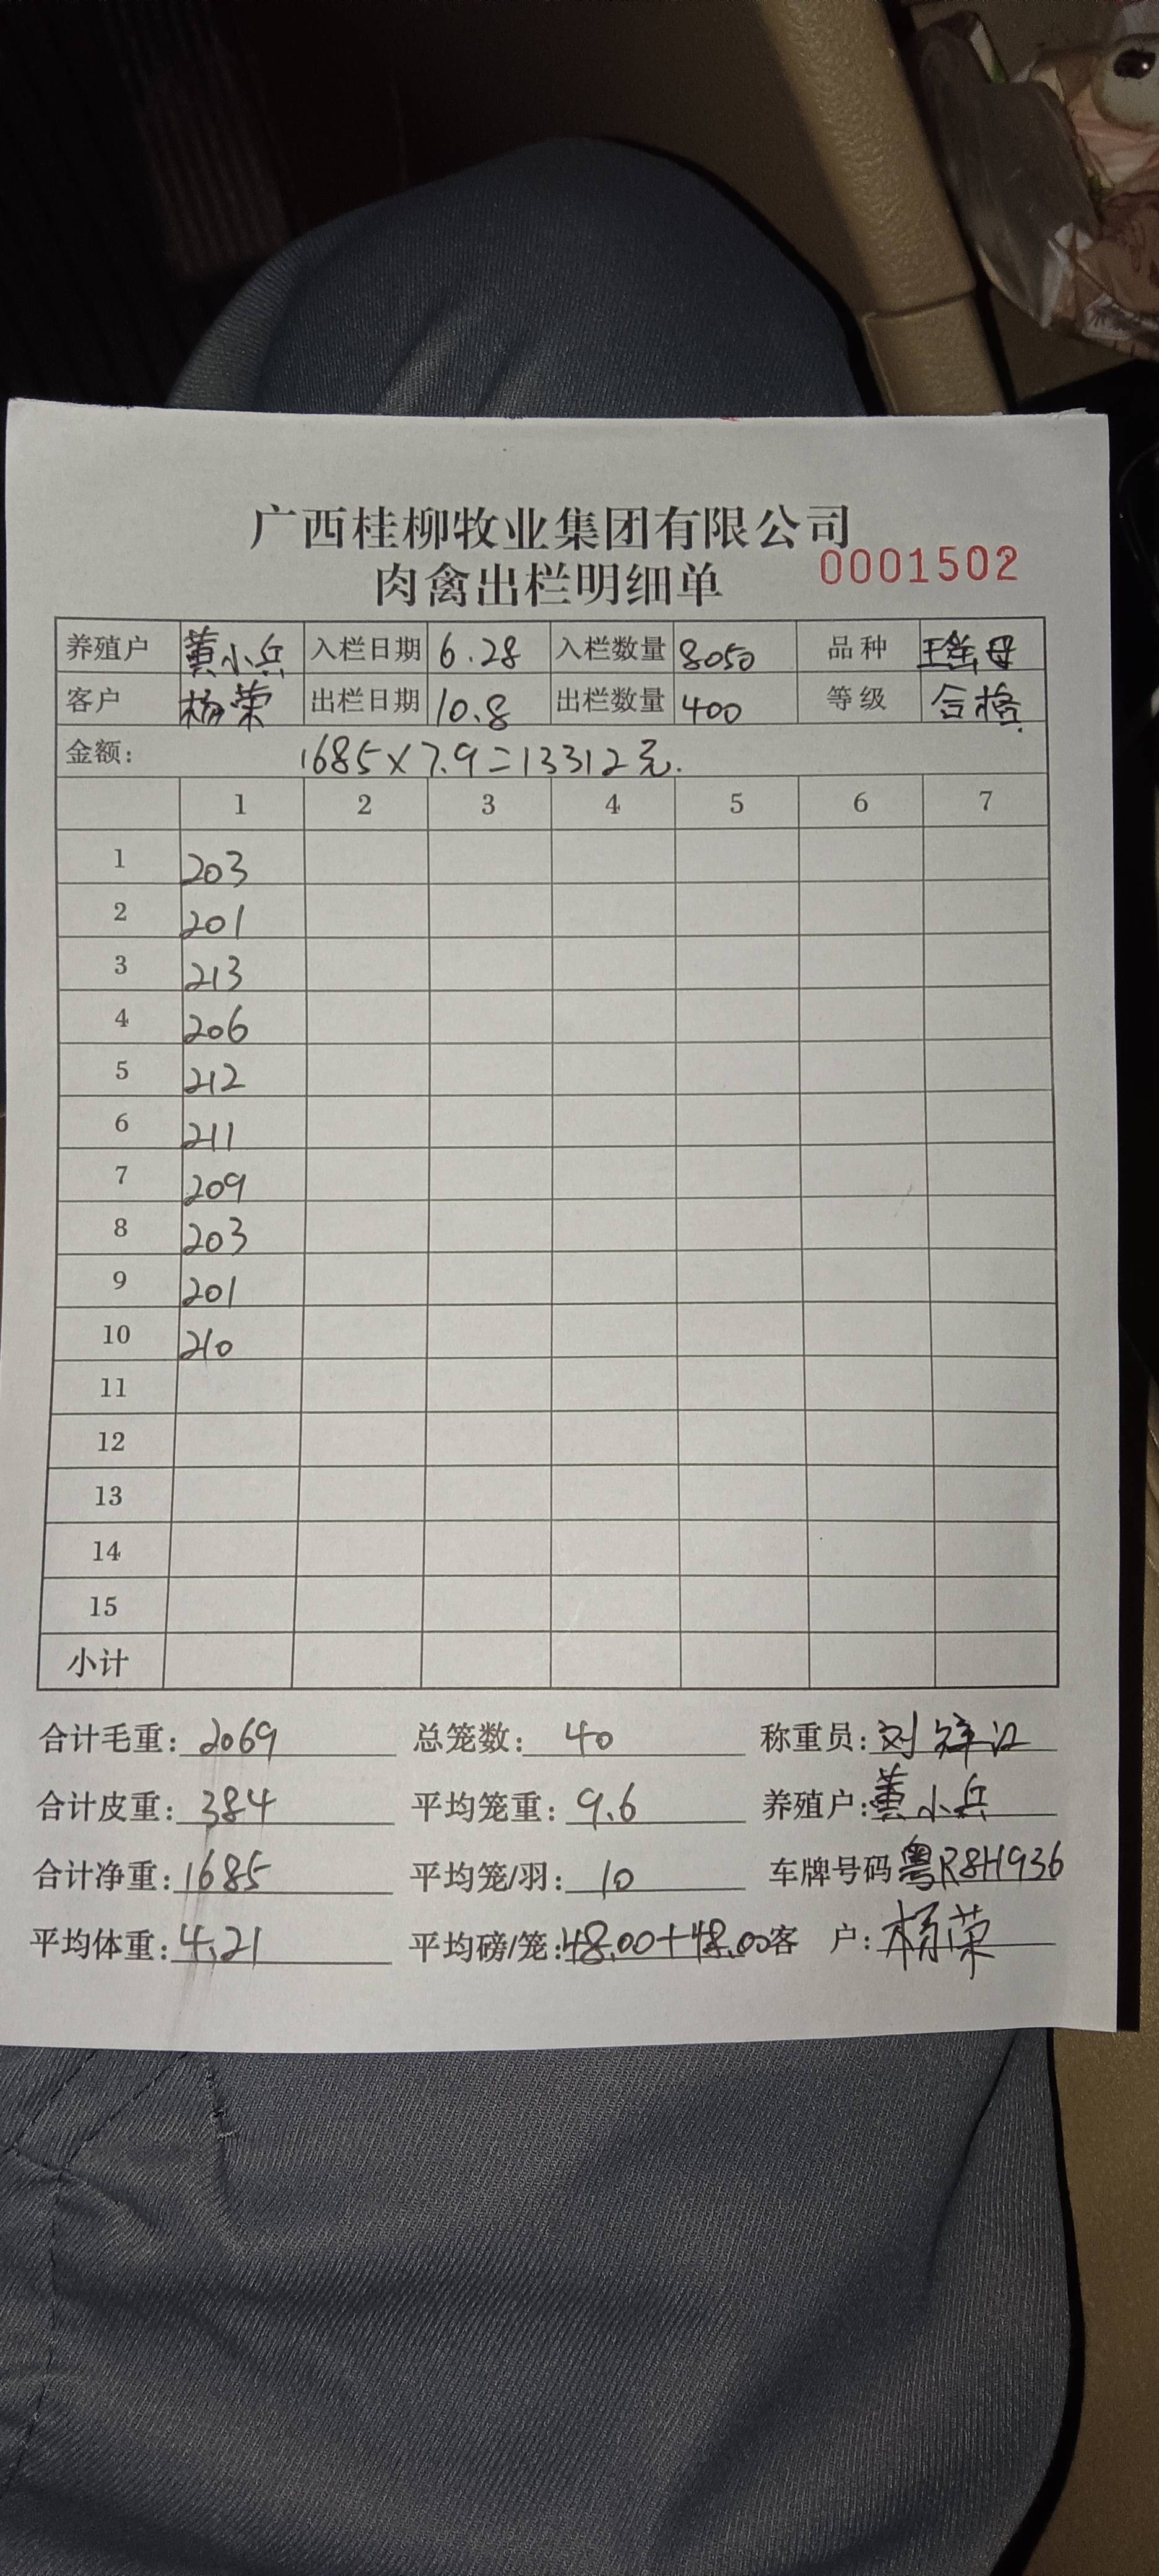 广西桂柳牧业集团有限公司
肉禽出栏明细单 0001502
养殖户 黄小兵 入栏日期 6.28 入栏数量 8050 品种 瑶母
客户 杨荣 出栏日期 10.8 出栏数量 400 等级 合格.
金额: 1685×7.9=13312元.
1 2 3 4 5 6 7
1 203
2 201
3 213
4 206
5 212
6 211
7 209
8 203
9 201
10 210
11
12
13
14
15
小计
合计毛重: 2069 总笼数: 40 称重员: 刘祥江
合计皮重: 384 平均笼重: 9.6 养殖户: 黄小兵
合计净重: 1685 平均笼/羽: 10 车牌号码 粤R8H936
平均体重: 4.21 平均磅/笼: 48.00+48.00 客 户: 杨荣